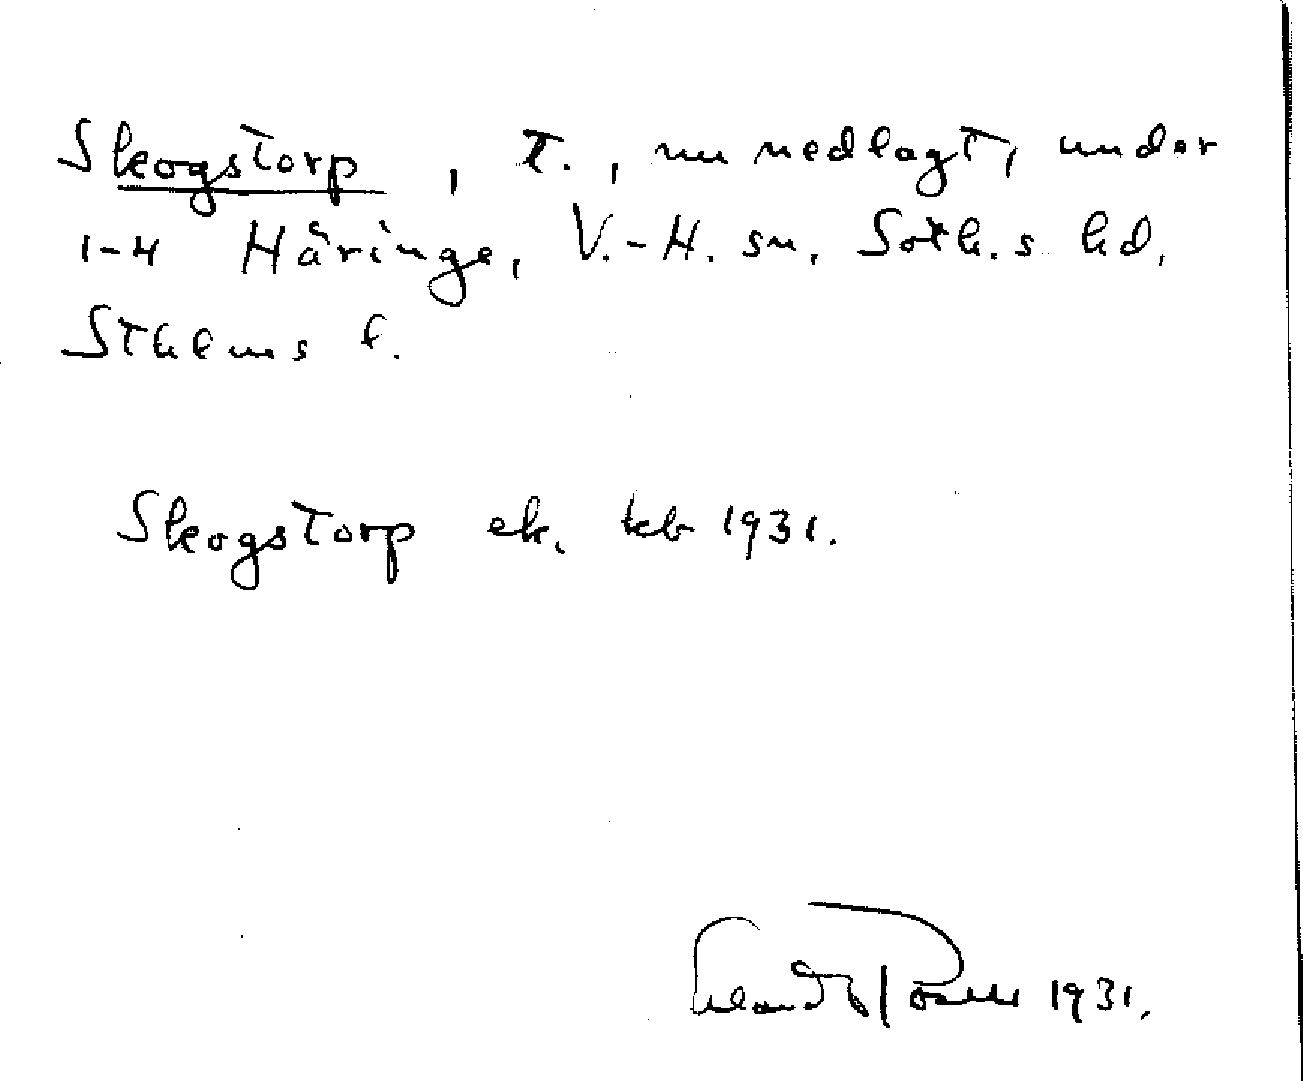 Skogstorp, T., nu nedlagt, under
1-4 Häringe, V.-H. sn, Soth.s hd,
Sthlms l.
Skogstorp ek. kb 1931.
1931.